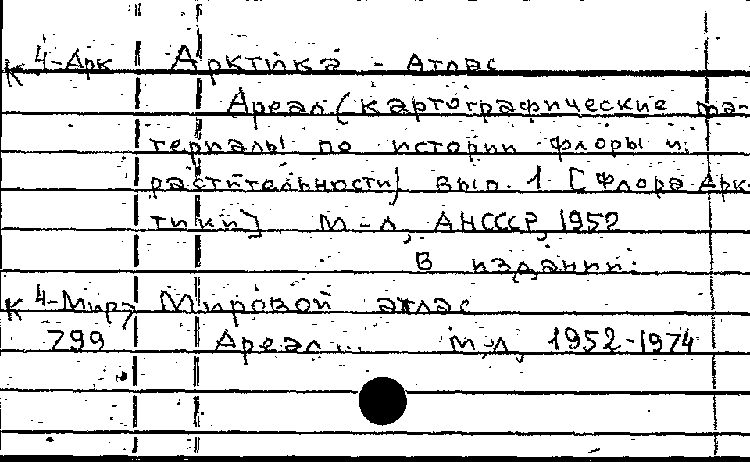 К 4-Арк Арктика - Атлас
Ареал (картографические ма-
териалы по истории флоры и
растительности) вып. 1 [Флора Арк-
тики] М-Л, АНСССР, 1952
В издании:
К 4-Мир Мировой атлас
799 Ареал... М,Л, 1952-1974